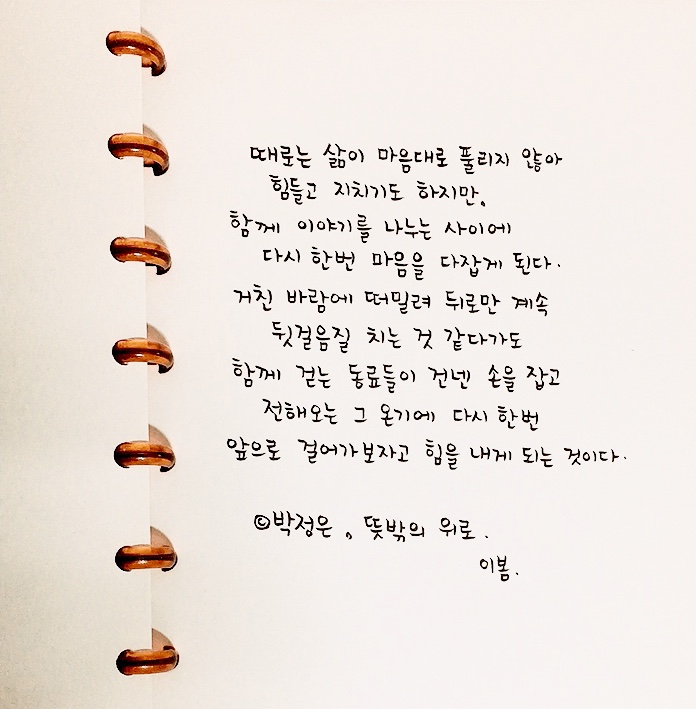 때로는 삶이 마음대로 풀리지 않아
힘들고 지치기도 하지만,
함께 이야기를 나누는 사이에
다시 한번 마음을 다잡게 된다.
거친 바람에 떠밀려 뒤로만 계속
뒷걸음질 치는 것 같다가도
함께 걷는 동료들이 건넨 손을 잡고
전해오는 그 온기에 다시 한번
앞으로 걸어가보자고 힘을 내게 되는 것이다.
©박정은, 뜻밖의 위로.
이봄.